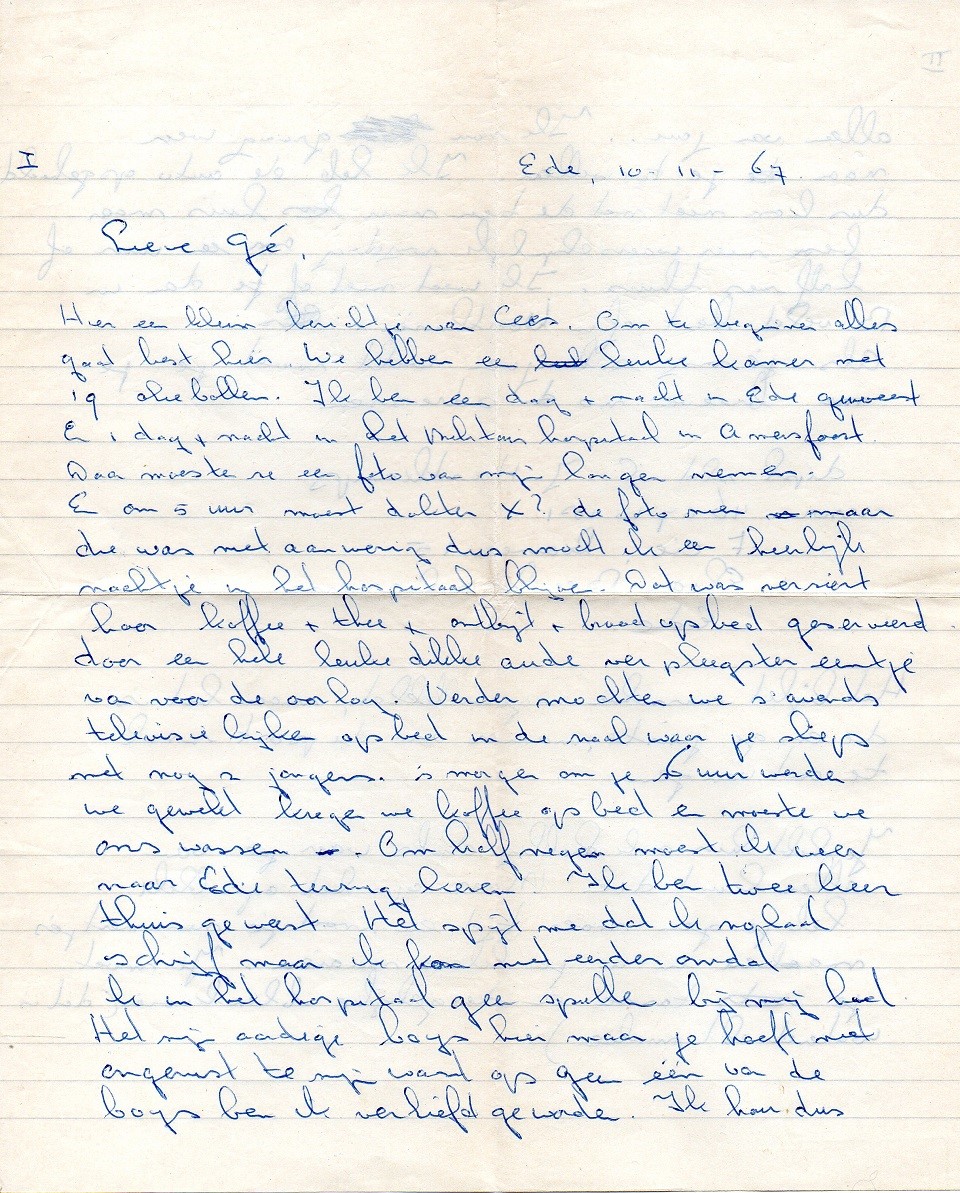 I
Ede, 10-11-67.
Lieve Gé,
Hier een klein berichtje van Cees. Om te beginnen alles
gaat best hier. We hebben een leuke kamer met
19 oliebollen. Ik ben een dag + nacht in Ede geweest
En 1 dag + nacht in het Militair hospitaal in Amersfoort.
Daar moeste ze een foto van mijn longen nemen.
En om 5 uur moest dokter X? de foto maar
die was niet aanwezig dus mocht ik een heerlijk
nachtje in het hospitaal blijven. Dat was versiert
hoor koffie + thee + ontbijt + brood op bed geserveerd
door een hele leuke dikke oude verpleegster eentje
van voor de oorlog. Verder mochten we s'avonds
televisie kijken op bed in de zaal waar je sliep
met nog 2 jongens. 's morgen om je 6 uur werde
we gewekt kregen we koffie op bed en moeste we
ons wassen. Om half negen moest ik weer
naar Ede terrug keren. Ik ben twee keer
thuis geweest. Het spijt me dat ik zo laat
schrijf maar ik kon niet eerder omdat
ik in het hospitaal geen spullen bij mij had.
Het zijn aardige boys hier maar je hoeft niet
ongerust te zijn want op geen één van de
boys ben ik verliefd geworden. Ik kan dus